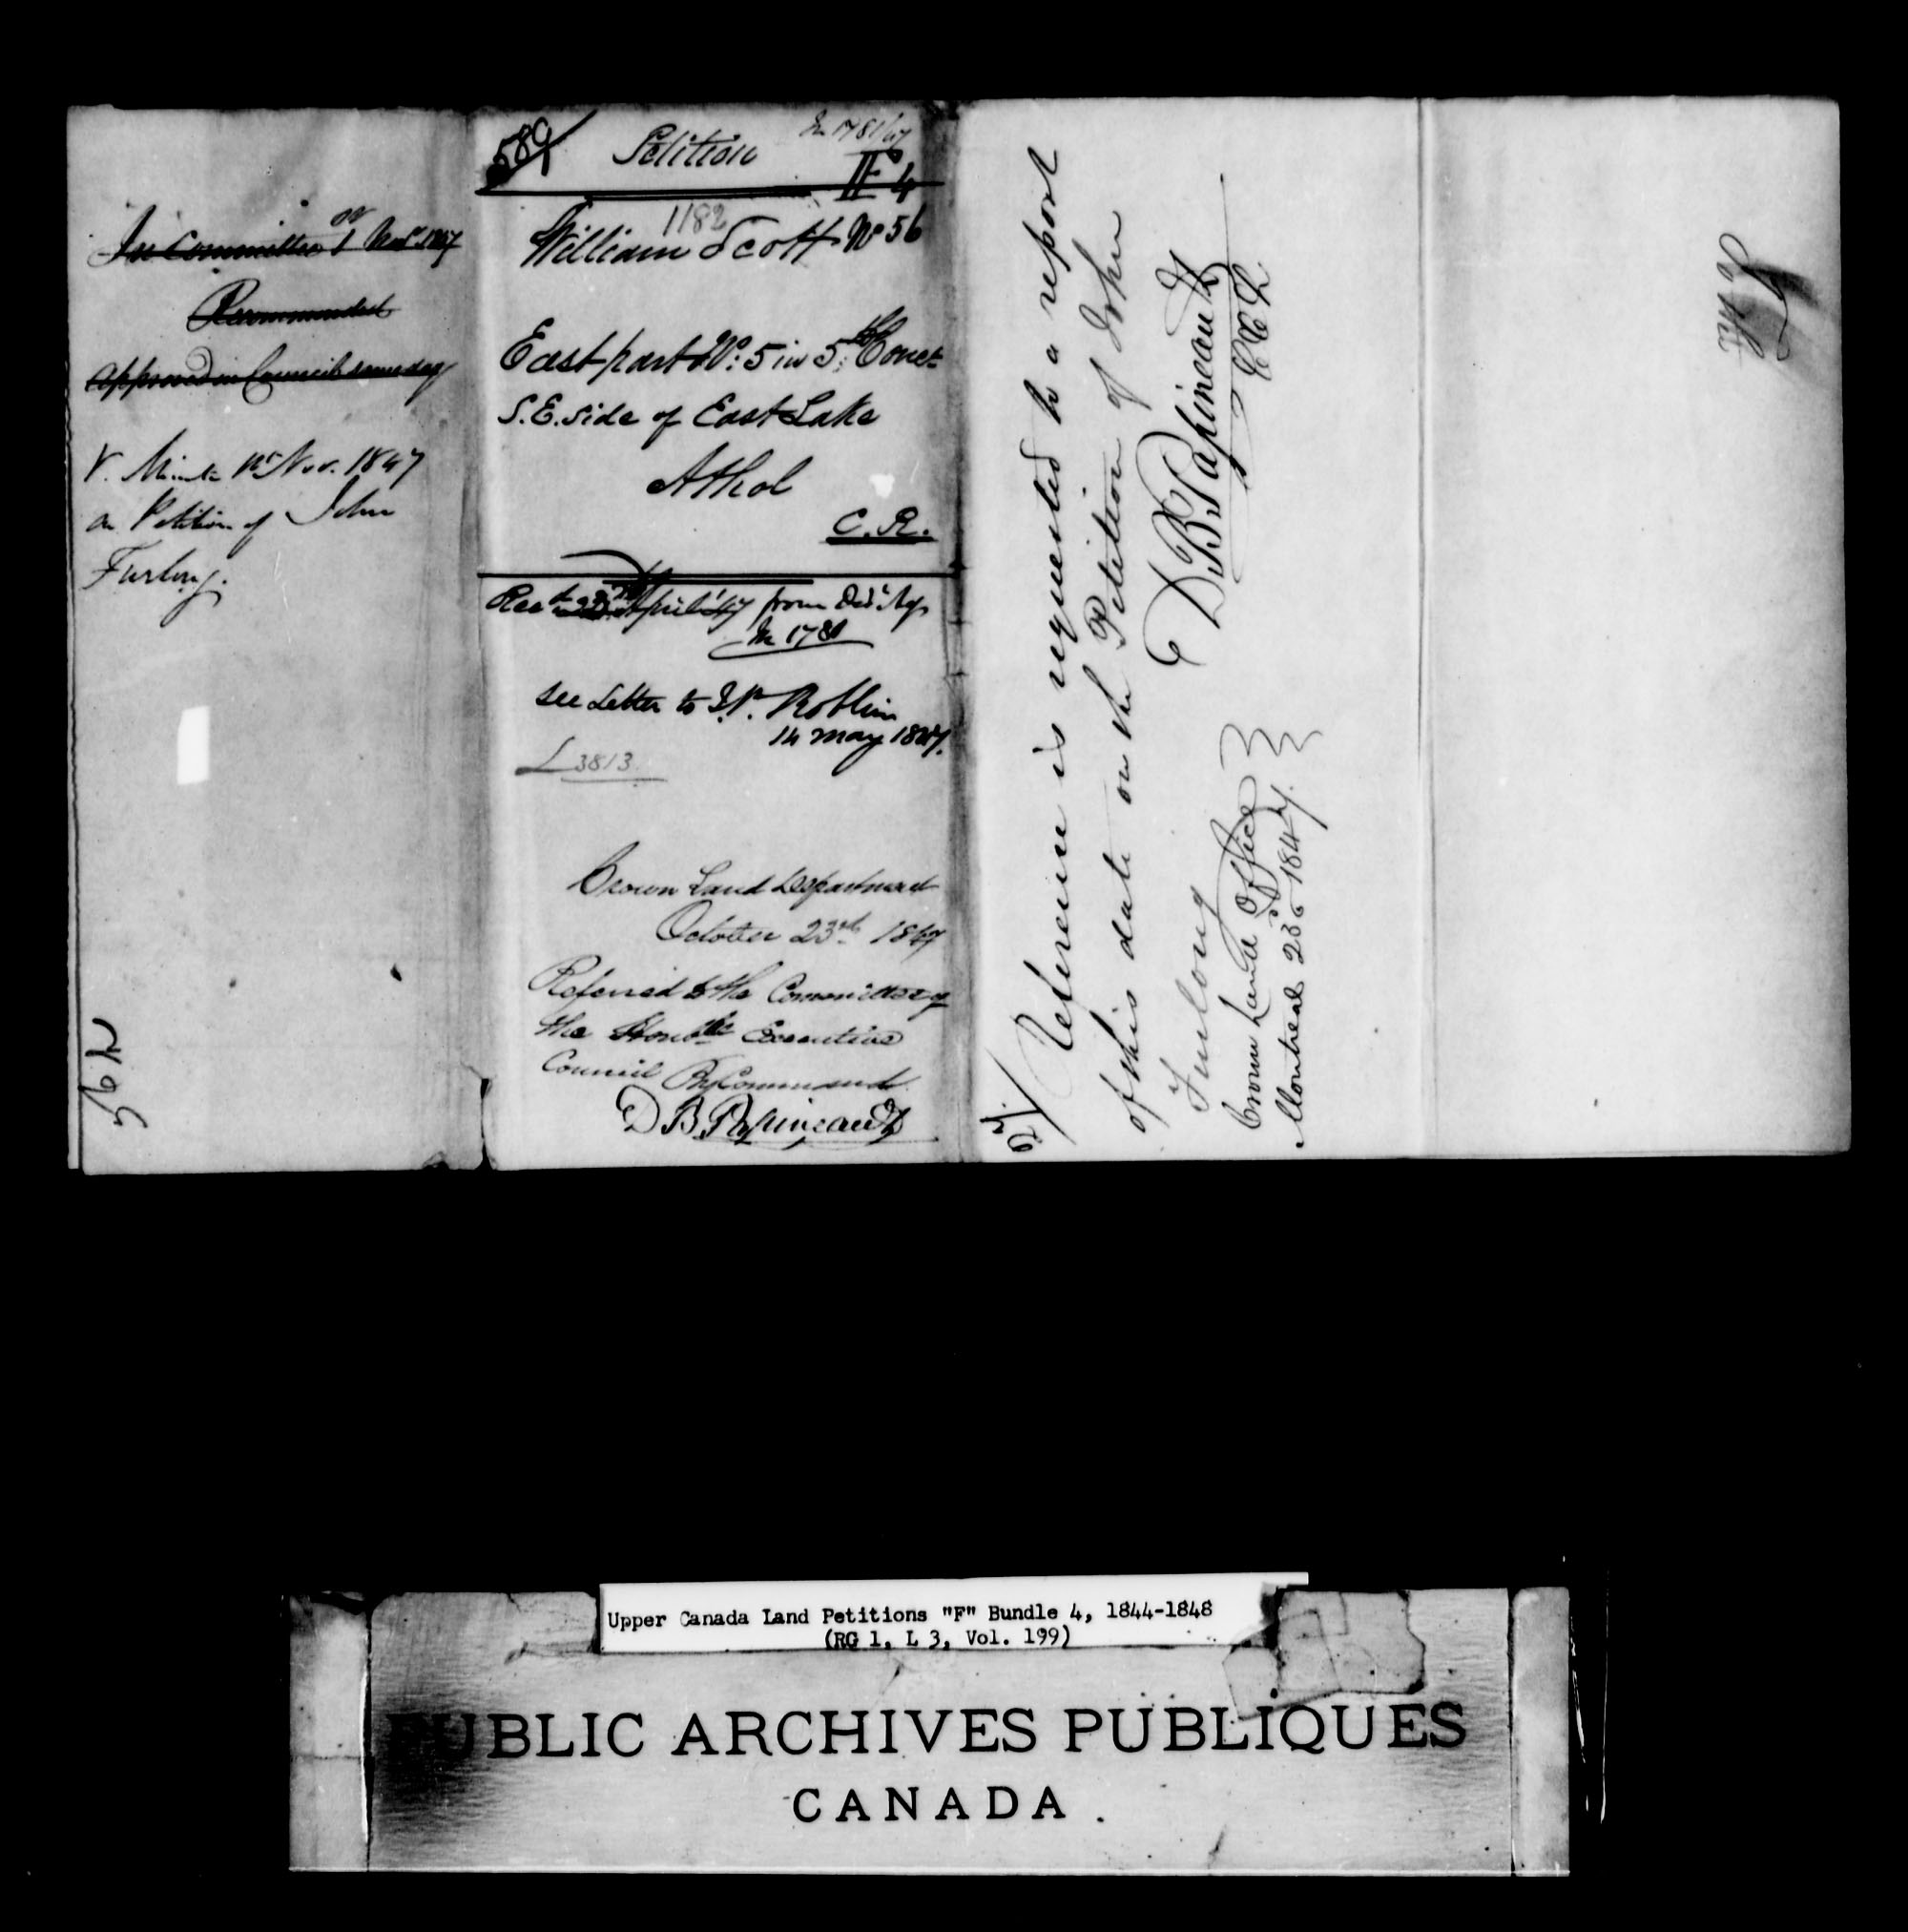 In Committee 1st Nov. 1847
Recommended
Approved in Council same day
V. Minute 1st Nov. 1847
on Petition of John
Furlong.
56
589
Petition
M 1781/47
F 4
1182
William Scott No 56
East part No. 5 in 5th Conct.
S.E. side of East Lake
Athol
C.R.
April '47 from
M 1781
see Letter to Roblin
14 May 1847.
L 3813
Crown Land Department
October 23rd 1847
Referred to the Committee of
the Honble Executive
Council By Command
D B Papineau
Reference is requested to a report
of this date on the Petition of John
Furlong
D B Papineau
C C L
Crown Land Office
Montreal 23 1847.
Upper Canada Land Petitions "F" Bundle 4, 1844-1848
(RG 1, L 3, Vol. 199)
PUBLIC ARCHIVES PUBLIQUES
CANADA